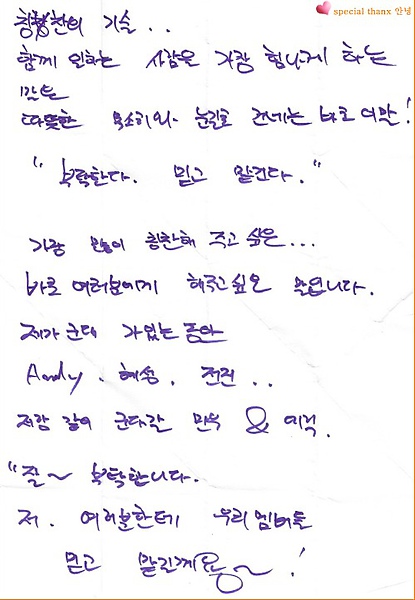 special thanx 안녕
칭찬의 기술...
함께 일하는 사람을 가장 힘나게 하는
말은
따뜻한 목소리와 눈빛으로 건네는 바로 이말!
"부탁한다. 믿고 맡긴다."
가장 많이 칭찬해 주고 싶은...
바로 여러분에게 해주고 싶은 말입니다.
제가 군대 가있는 동안
Andy. 혜성. 전진..
저랑 같이 군대간 민우 & 에릭.
"잘~ 부탁합니다.
저. 여러분한테 우리 멤버들
믿고 맡긴께요용~~!